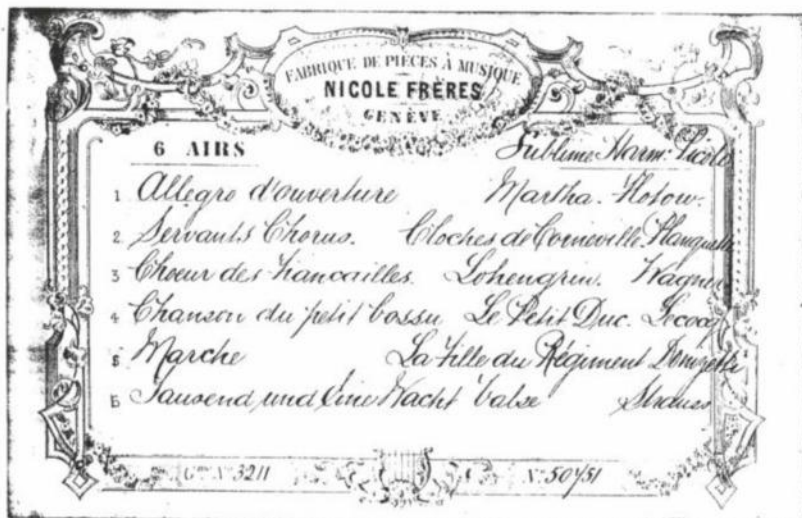 FABRIQUE DE PIÈCES À MUSIQUE
NICOLE FRÈRES
GENÈVE
6 AIRS Sublime Harm: Picolo
1 Allegro d'ouverture Martha. Flotow.
2 Servants Chorus. Cloches de Corneville. Planquette
3 Choeur des fiancailles. Lohengrin. Wagner
4 Chanson du petit bossu Le Petit Duc. Lecocq
5 Marche La Fille du Régiment Donizetti
6 Tausend und Eine Nacht Valse Strauss
Gme No 3211 No 50151